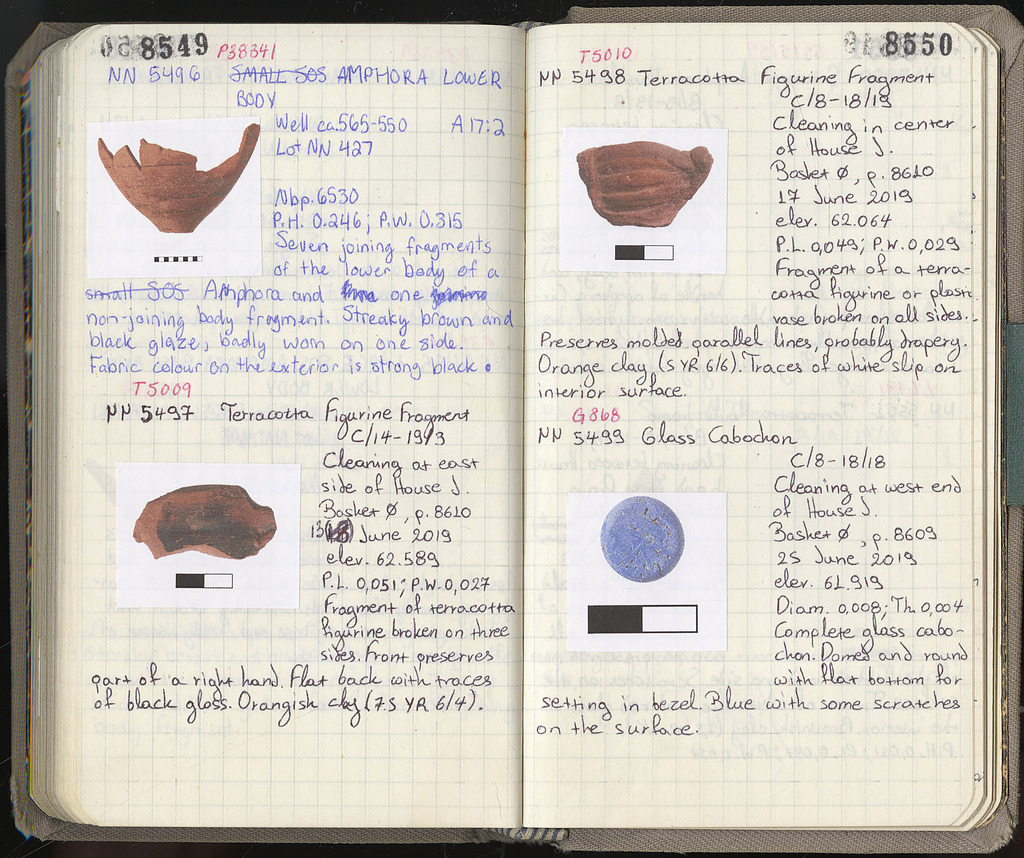 8549 P38341
NN 5496 SMALL SOS AMPHORA LOWER
BODY
Well ca.565-550 A 17:2
Lot NN 427
Nbp.6530
P.H. 0.246; P.W. 0.315
Seven joining fragments
of the lower body of a
small SOS Amphora and one
non-joining body fragment. Streaky brown and
black glaze, badly worn on one side.
Fabric colour on the exterior is strong black.
T5009
NN 5497 Terracotta Figurine Fragment
C/14-19/3
Cleaning at east
side of House J.
Basket Ø, p. 8610
13 June 2019
elev. 62.589
P.L. 0,051; P.W. 0,027
Fragment of terracotta
figurine broken on three
sides. Front preserves
part of a right hand. Flat back with traces
of black gloss. Orangish clay (7.5 YR 6/4).
8550
T5010
NN 5498 Terracotta Figurine Fragment
C/8-18/19
Cleaning in center
of House J.
Basket Ø, p. 8610
17 June 2019
elev. 62.064
P.L. 0,049; P.W. 0,029
Fragment of a terra-
cotta figurine or plastic
vase broken on all sides.
Preserves molded parallel lines, probably drapery.
Orange clay (5 YR 6/6). Traces of white slip on
interior surface.
G868
NN 5499 Glass Cabochon
C/8-18/18
Cleaning at west end
of House J.
Basket Ø, p. 8609
25 June 2019
elev. 61.919
Diam. 0,008; Th. 0,004
Complete glass cabo-
chon. Domed and round
with flat bottom for
setting in bezel. Blue with some scratches
on the surface.